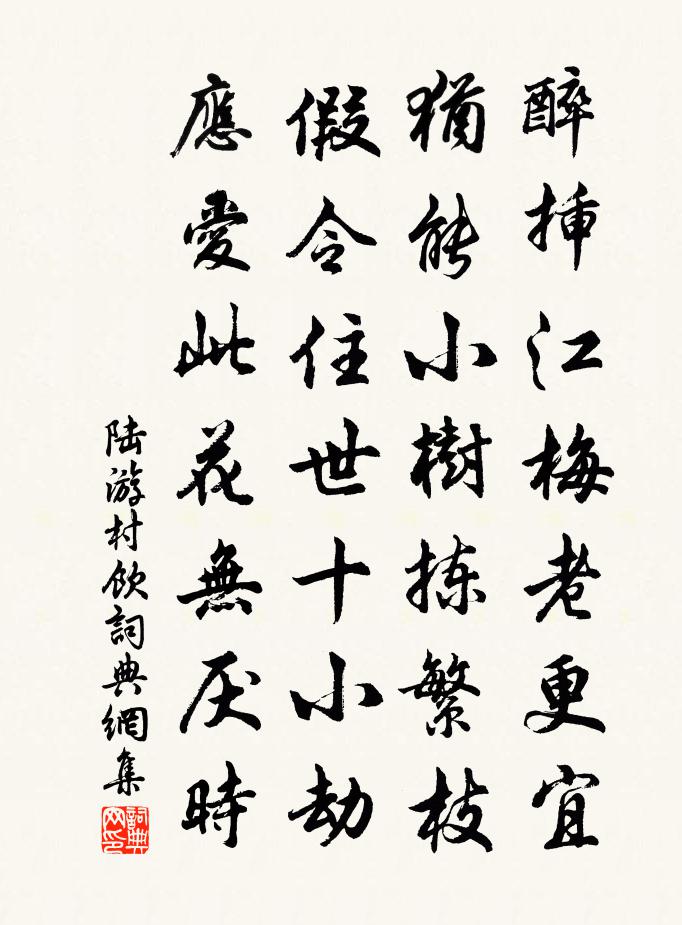 醉揷江梅老更宜
猶能小樹拣繁枝
假令住世十小劫
應愛此花無厌時
陆游村飲詞典網集
詞典网印